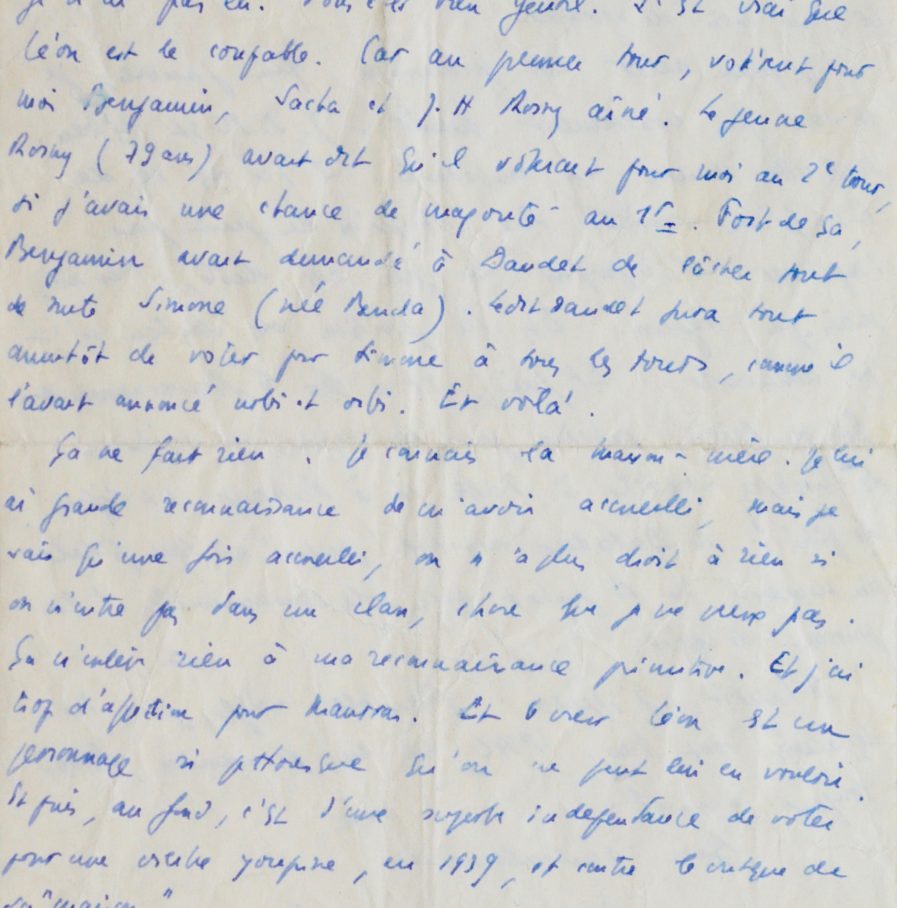 je n'ai pas lu. Vous êtes bien gentil. C'est vrai que
Léon est le coupable. Car au premier tour, votèrent pour
moi Benjamin, Sacha et J. H Rosny aîné. Le jeune
Rosny (79 ans) avait dit qu'il voterait pour moi au 2e tour,
si j'avais une chance de majorité au 1er. Fort de ça,
Benjamin avait demandé à Daudet de lâcher tout
de suite Simone (née Benda). Ledit Daudet jura tout
aussitôt de voter pour Simone à tous les tours, comme il
l'avait annoncé urbi et orbi. Et voilà.
Ça ne fait rien. Je connais la maison-mère. Je lui
ai grande reconnaissance de m'avoir accueilli, mais je
sais qu'une fois accueilli, on n'a plus droit à rien si
on n'entre pas dans un clan, chose que je ne veux pas.
Ça n'enlève rien à ma reconnaissance primitive. Et j'ai
trop d'affection pour Maurras. Et le vieux Léon est un
personnage si pittoresque qu'on ne peut lui en vouloir.
Et puis, au fond, c'est d'une superbe indépendance de voter
pour une vieille youpine, en 1939, et contre le critique de
sa "maison"